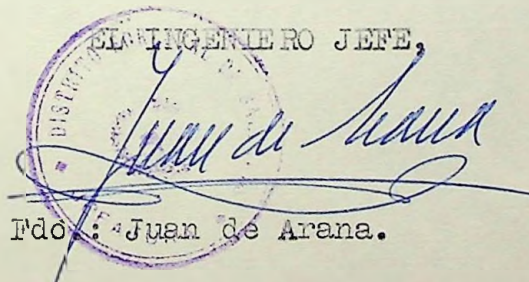 EL INGENIERO JEFE,
DISTRITO
Juan de Arana
Fdo.: Juan de Arana.